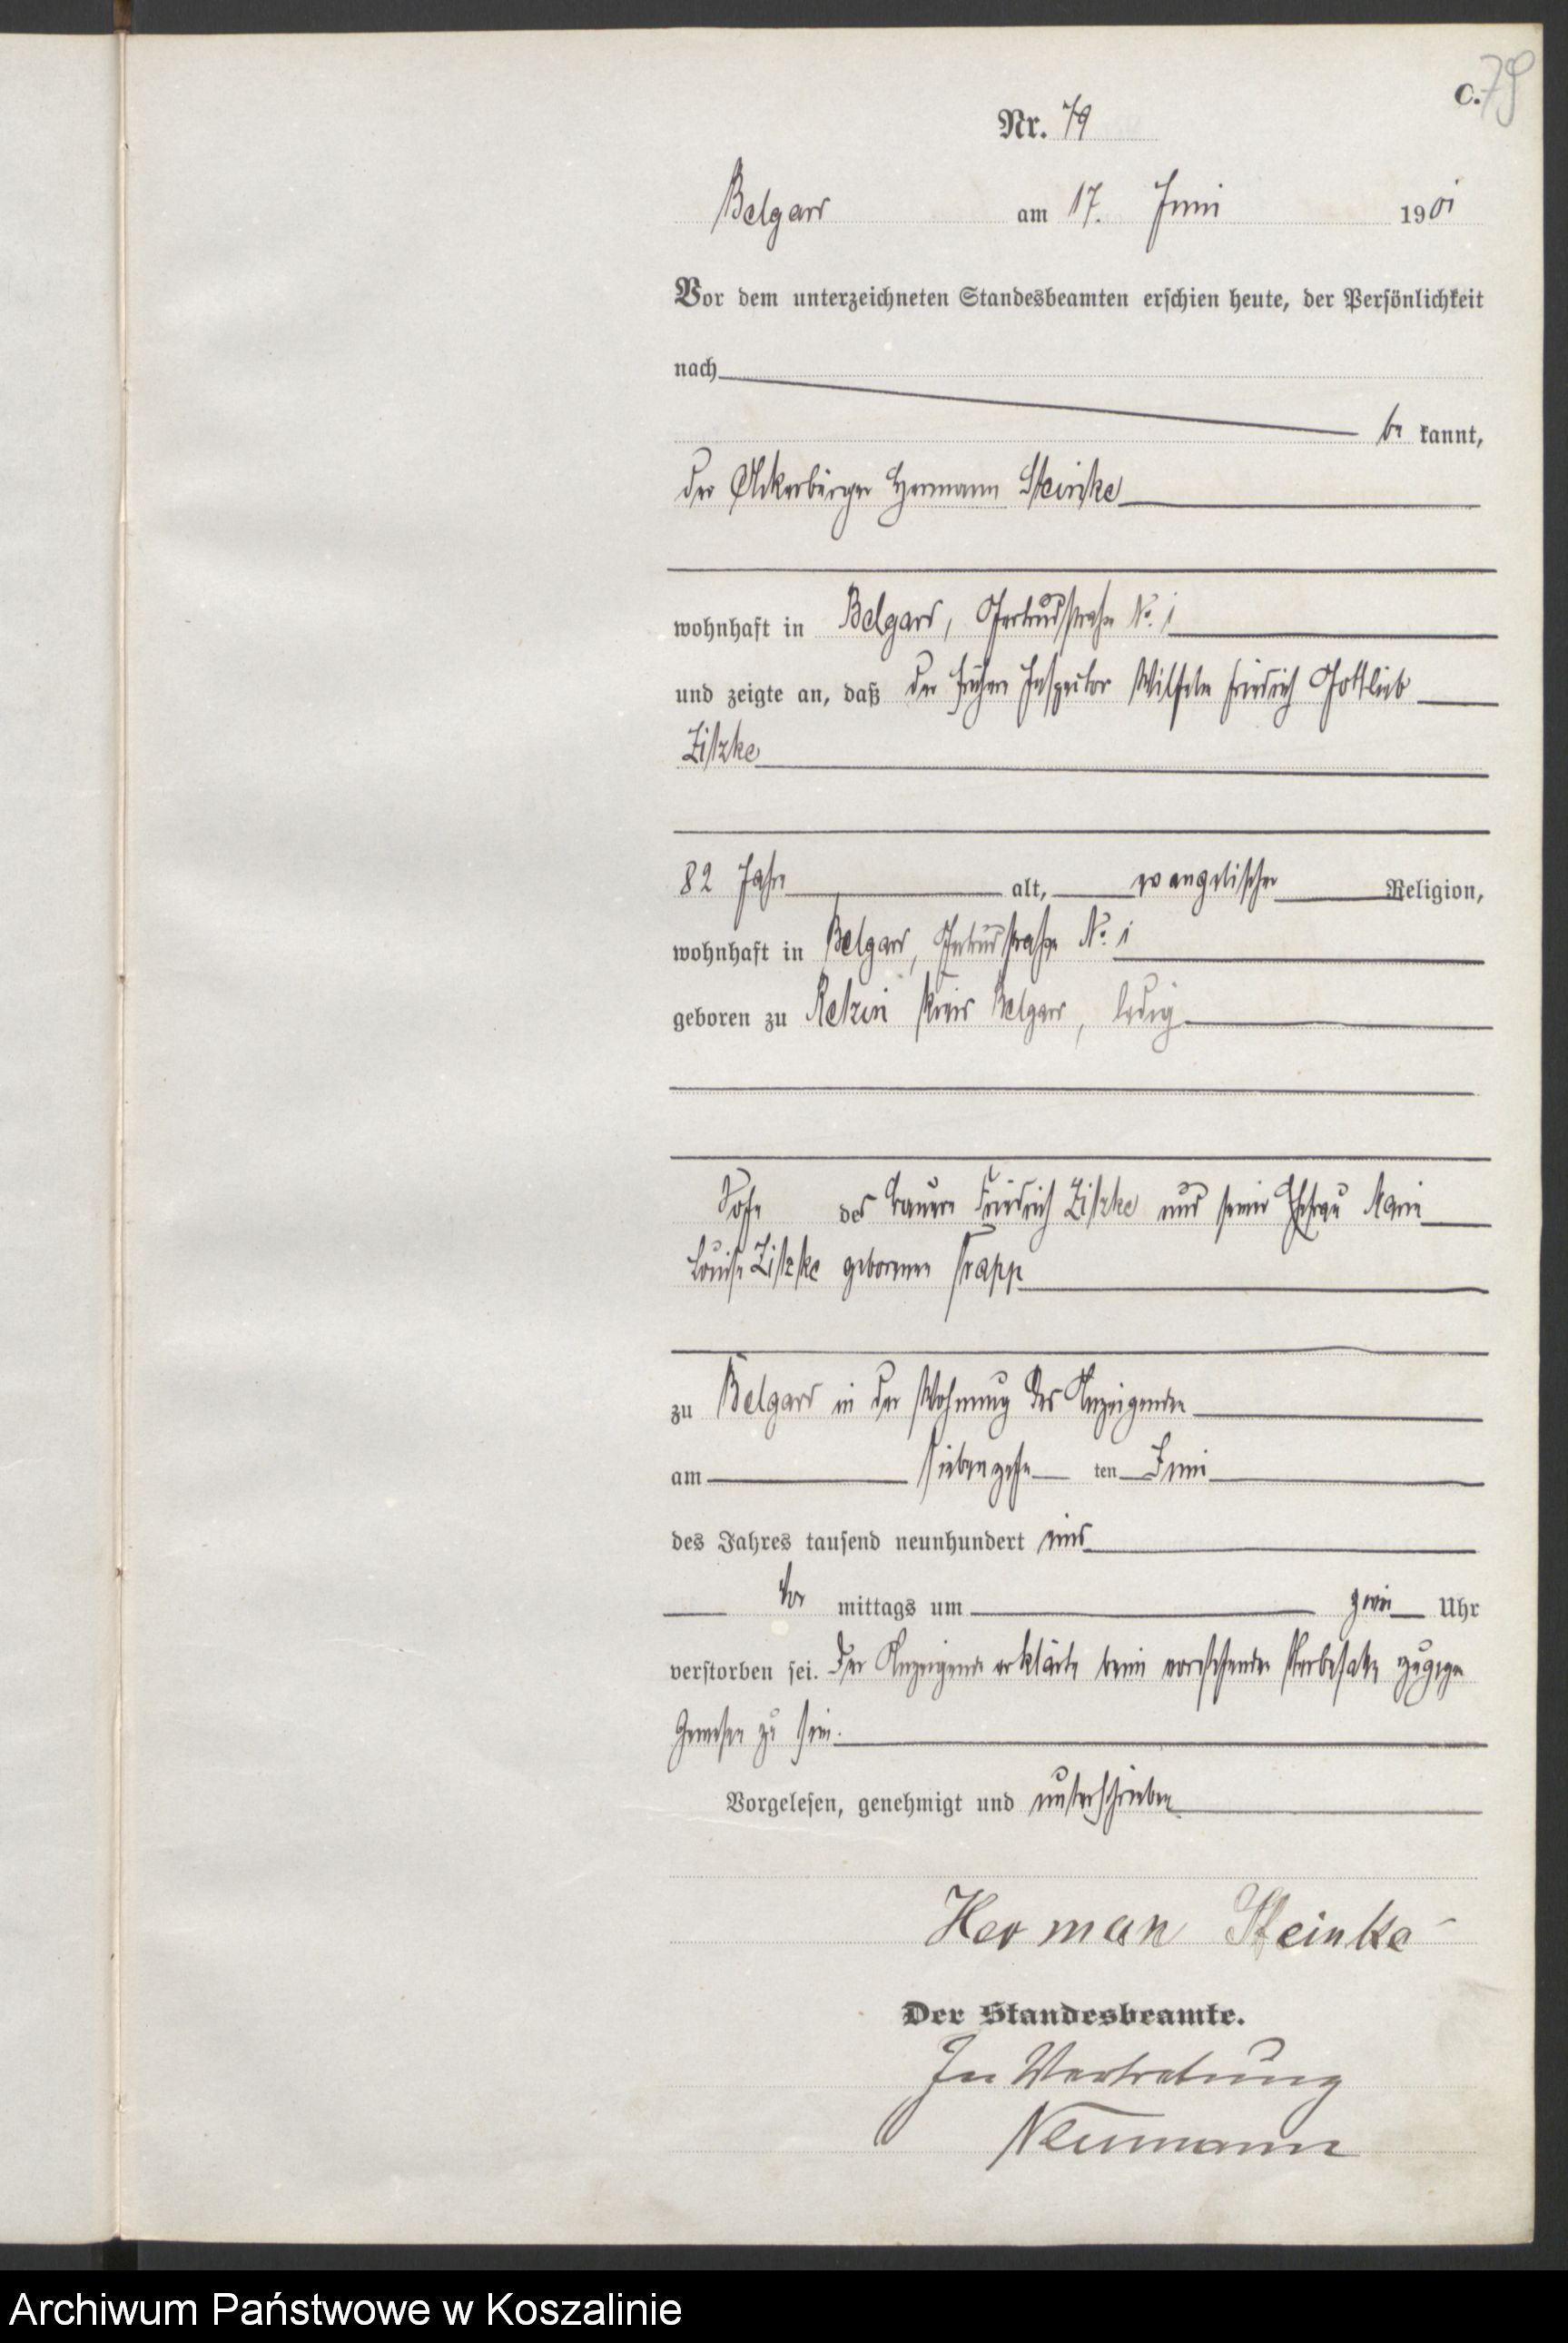 C.
79
Nr. 79
Belgard am 17. Juni 1901
Vor dem unterzeichneten Standesbeamten erschien heute, der Persönlichkeit
nach
be kannt,
der Ackerbürger Hermann Steinke
wohnhaft in Belgard, Gertrudstraße No. 1
und zeigte an, daß der frühere Inspector Wilhelm Friedrich Gottlieb
Zitzke
82 Jahre alt, evangelischer Religion,
wohnhaft in Belgard, Gertrudstraße No. 1
geboren zu Retzin Kreis Belgard, ledig
Sohn des Bauern Friedrich Zitzke und seiner Ehefrau Marie
Louise Zitzke geborenen
zu Belgard in der Wohnung des Anzeigenden
am siebenzehn ten Juni
des Jahres tausend neunhundert eins
Vor mittags um zwei Uhr
verstorben sei. Der Anzeigende erklärte beim vorstehenden Sterbefalle zugegen
gewesen zu sein.
Vorgelesen, genehmigt und unterschrieben
Herman Steinke
Der Standesbeamte.
In Vertretung
Neumann
Archiwum Państwowe w Koszalinie